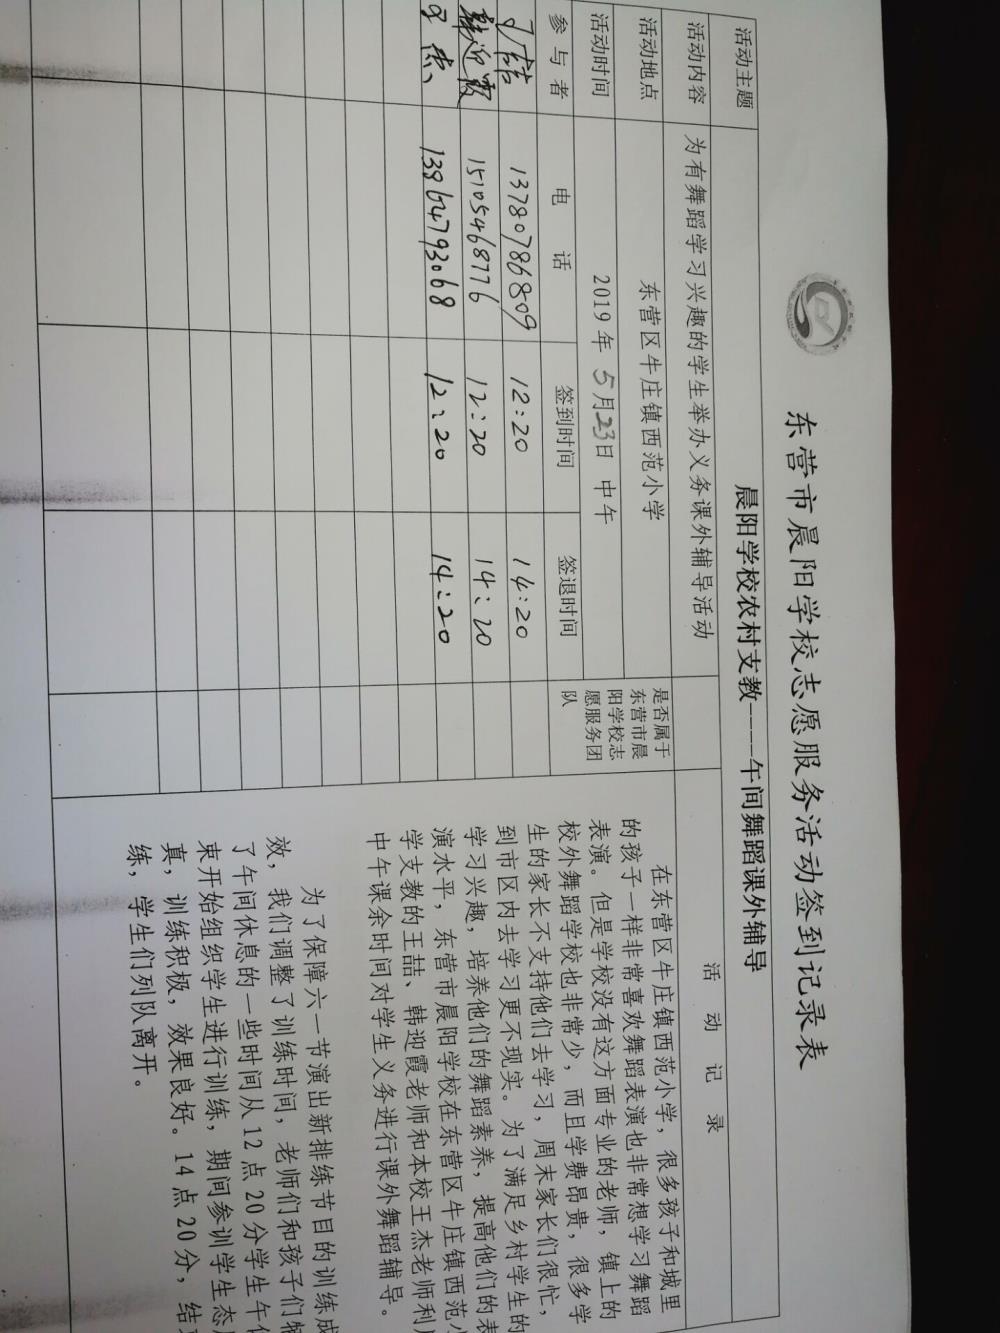 东营市晨阳学校志愿服务活动签到记录表
活动主题 晨阳学校农村支教----午间舞蹈课外辅导
活动内容 为有舞蹈学习兴趣的学生举办义务课外辅导活动
活动地点 东营区牛庄镇西范小学
活动时间 2019年5月23日 中午
参与者 电话 签到时间 签退时间
是否属于
东营市晨
阳学校志
愿服务团
队
王喆 13780786809 12:20 14:20
韩迎霞 15105468776 12:20 14:20
王杰 13964793068 12:20 14:20
活动记录
在东营区牛庄镇西范小学，很多孩子和城里
的孩子一样非常喜欢舞蹈表演也非常想学习舞蹈
表演。但是学校没有这方面专业的老师，镇上的
校外舞蹈学校也非常少，而且学费昂贵，很多学
生的家长不支持他们去学习，周末家长们很忙，
到市区内去学习更不现实。为了满足乡村学生的
学习兴趣，培养他们的舞蹈素养，提高他们的表
演水平，东营市晨阳学校在东营区牛庄镇西范小
学支教的王喆、韩迎霞老师和本校王杰老师利用
中午课余时间对学生义务进行课外舞蹈辅导。
为了保障六一节演出新排练节目的训练成
效，我们调整了训练时间，老师们和孩子们牺
了午间休息的一些时间从12点20分学生午休
束开始组织学生进行训练，期间参训学生态度
真，训练积极，效果良好。14点20分，结
练，学生们列队离开。